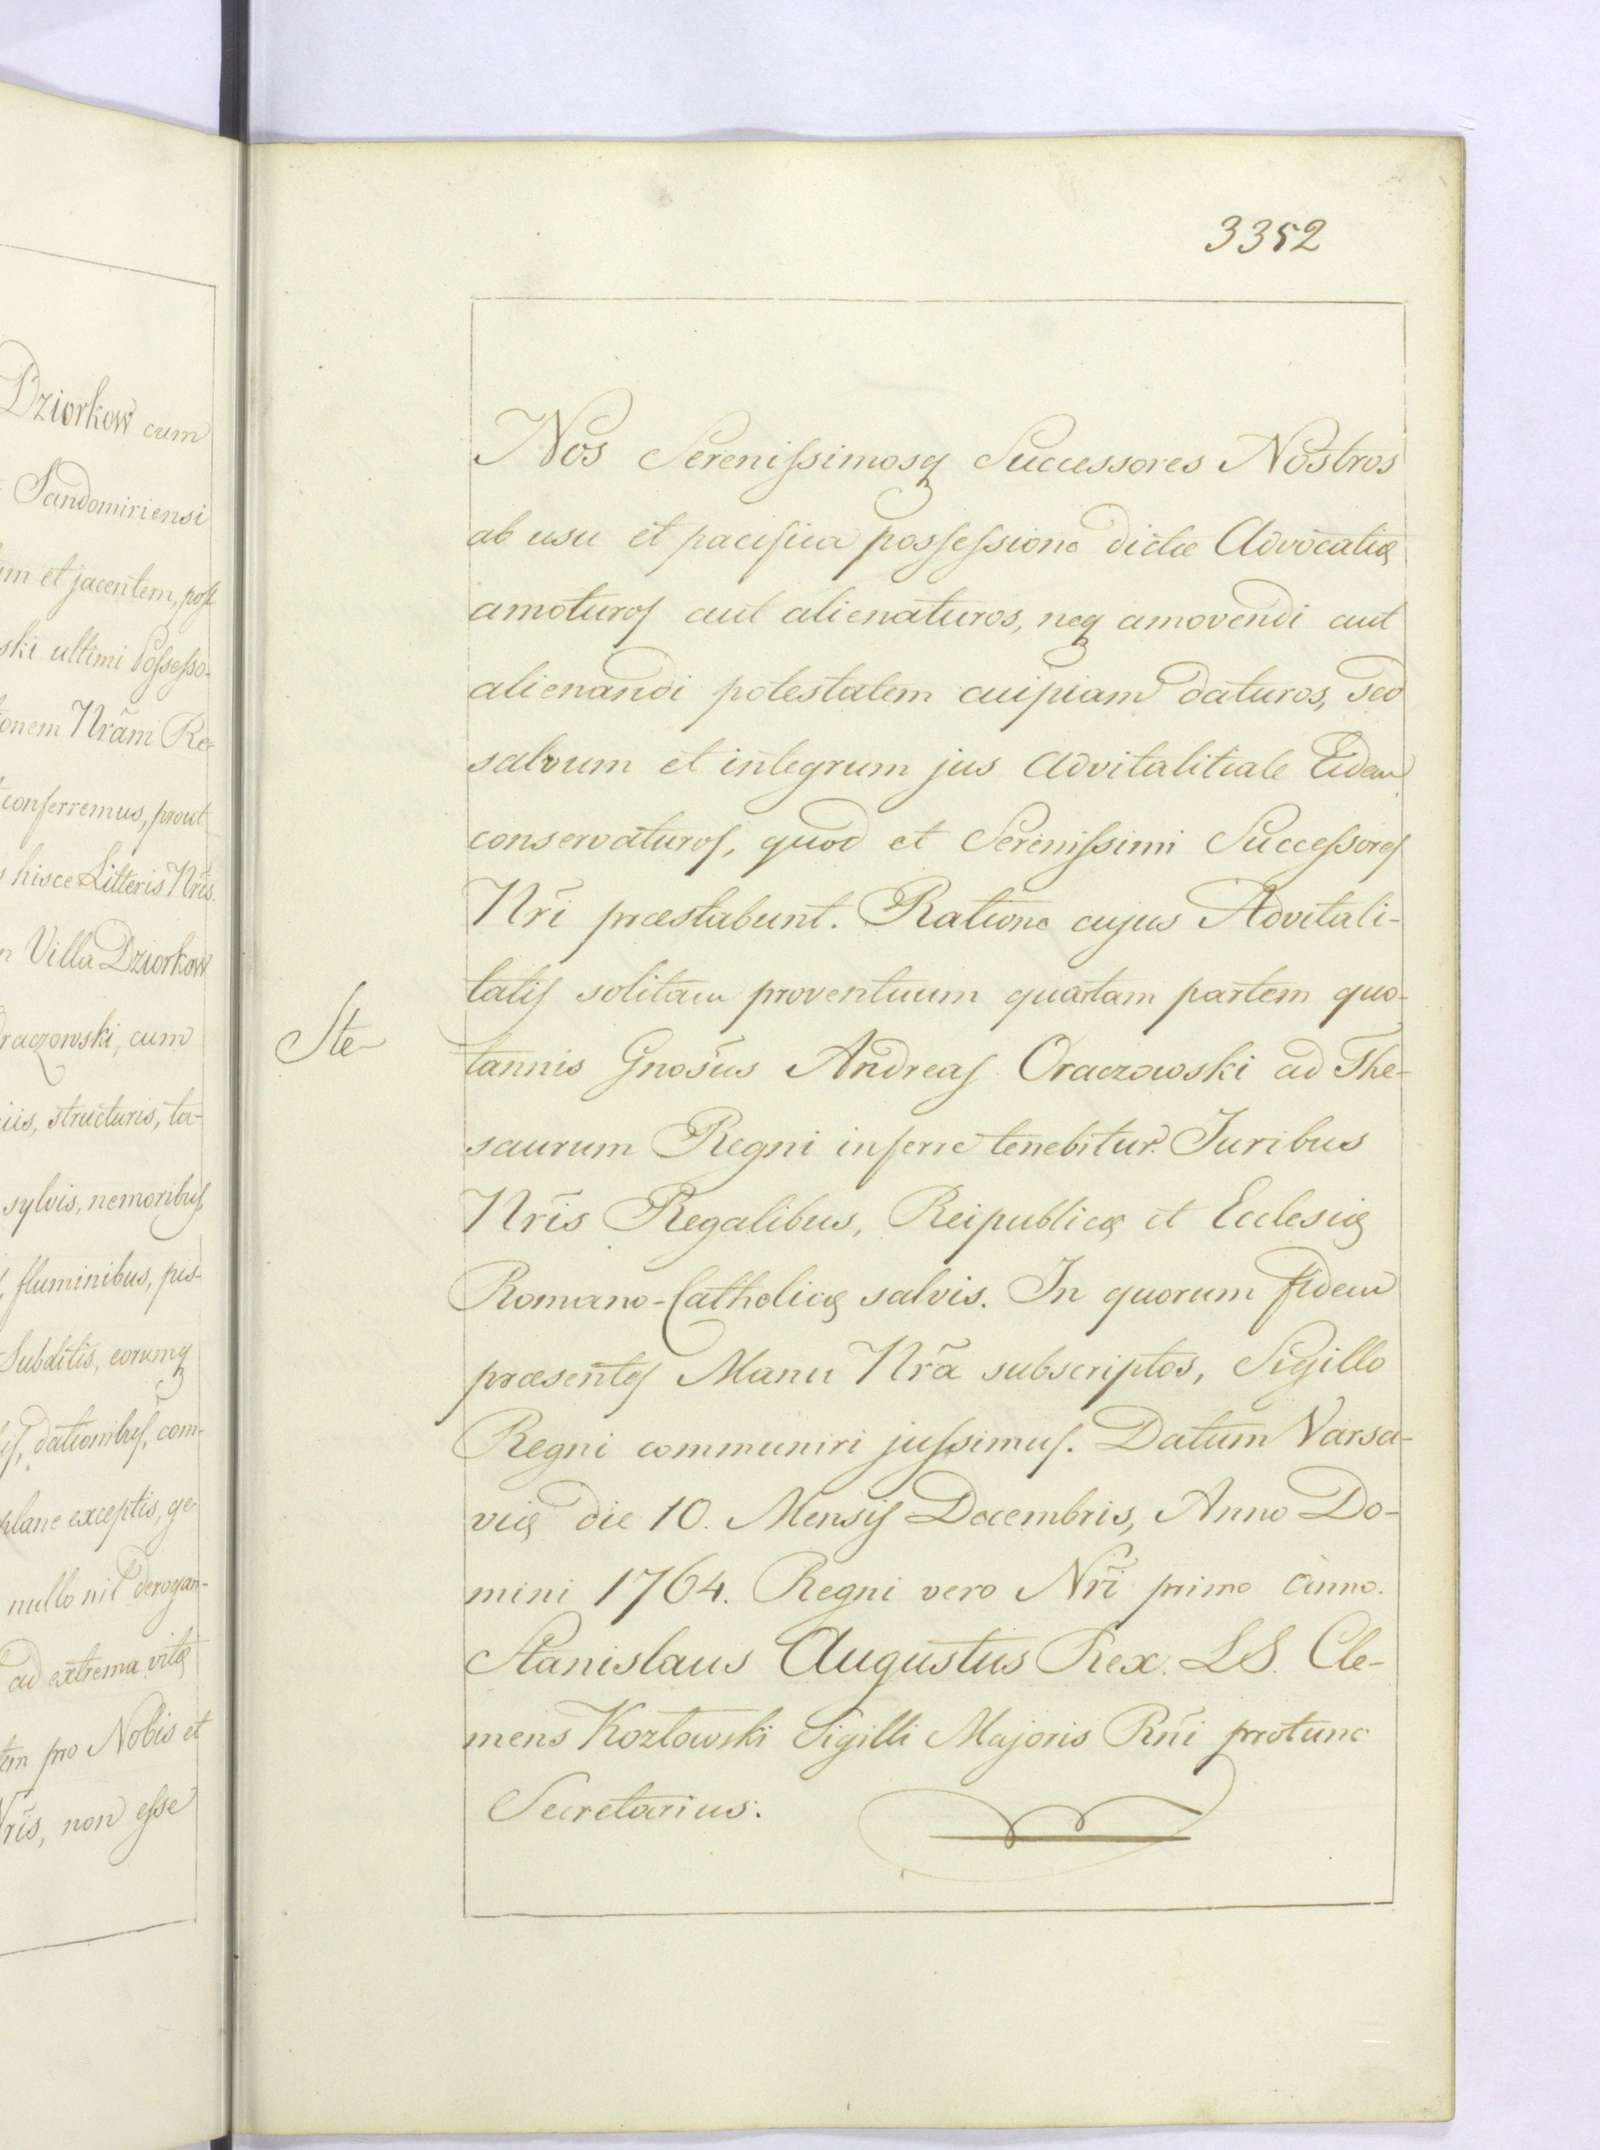 Dziorkow cum
Sandomiriensi
et jacentem, post
ski ultimi Possesso-
onem Nrãm Re-
conferremus, prout
hisce Litteris Nrĩs
Villa Dziorkow
raczowski, cum
iis, structuris, ta-
sylvis, nemoribus,
fluminibus, pis-
Subditis, eorumq
dationibus, com-
plane exceptis, ge-
nullo nil derogan-
ad extrema vitæ
pro Nobis et
Nrĩs, non esse
3352
Nos Serenissimosq Successores Nostros
ab usu et pacifica possessione dictæ Advocatiæ
amoturos aut alienaturos, neq amovendi aut
alienandi potestatem cuipiam daturos, sed
salvum et integrum jus advitalitiale Eidem
conservaturos, quod et Serenissimi Successores
Nrĩ præstabunt. Ratione cujus Advitali-
tatis solitam proventuum quartam partem quo-
Ste
tannis Gnosũs Andreas Oraczowski ad The-
saurum Regni inferre tenebitur. Juribus
Nrĩs Regalibus, Reipublicæ et Ecclesiæ
Romano-Catholicæ salvis. In quorum fidem
præsentes Manu Nrã subscriptas, Sigillo
Regni communiri jussimus. Datum Varsa-
viæ die 10. Mensis Decembris, Anno Do-
mini 1764. Regni vero Nrĩ primo anno.
Stanislaus Augustus Rex. LS. Cle-
mens Kozłowski Sigilli Majoris Rnĩ protunc
Secretarius.